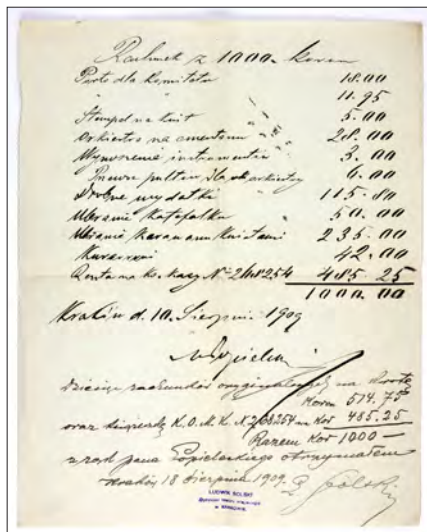 Rachunek z 1000. Koron
Porto dla Komitetu 18.00
11.95
Stempel na kwit 5.00
Orkiestra na cmentarzu 28.00
Wynoszenie instrumentów 3.00
pultów dla orkiestry 6.00
Drobne wydatki 115.80
Ubranie Katafalku 50.00
Ubranie Karawanu Kwiatami 235.00
42.00
Reszta na ks. kasy № 248254 485.25
1000.00
Kraków d. 10. Sierpnia 1909
rachunków oryginalnych na kwotę
Koron 514.75
oraz książeczkę K.O.M.K. № 268254 na Kor 485.25
Razem Kor 1000 —
z rąk pana Popielackiego otrzymałem
Kraków 18 Sierpnia 1909. L Solski
LUDWIK SOLSKI
W KRAKOWIE.